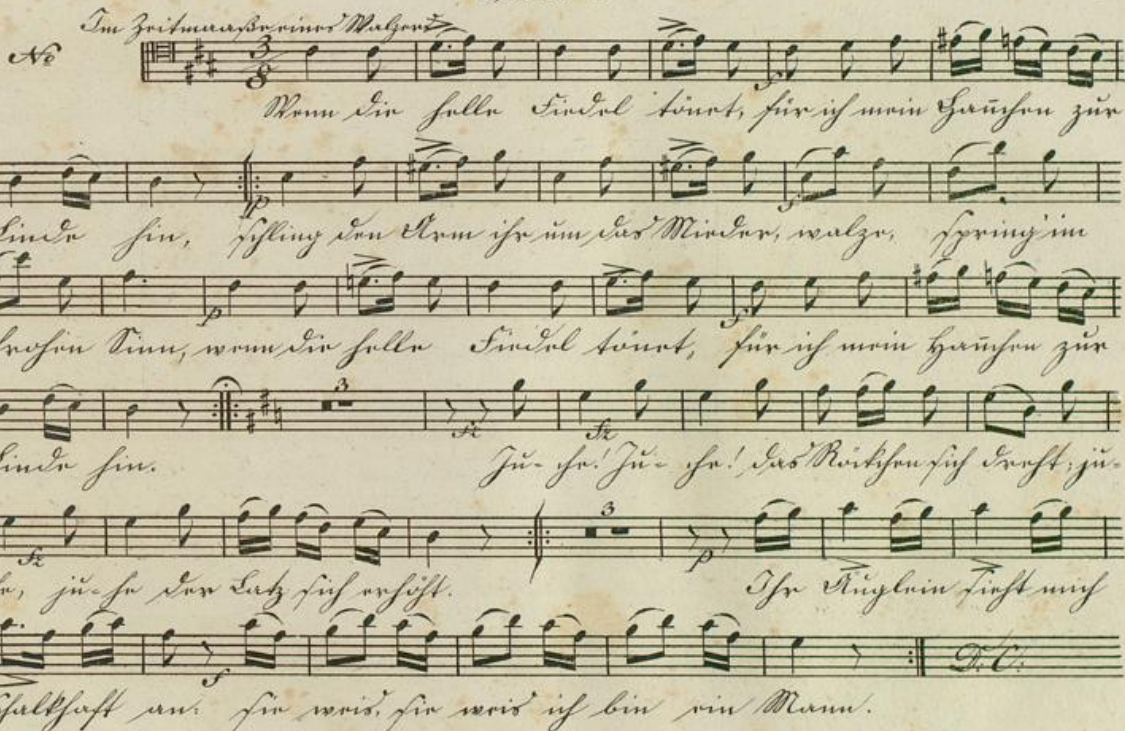 Im Zeitmaaße eines Walzers
No 3/8
Wenn die helle Fiedel tönet, für ich mein Hañchen zur
Linde hin, schling den Arm ihr um das Mieder, walze, spring' im
frohen Sinn, wenn die helle Fiedel tönet, für ich mein Hañchen zur
3
Linde hin. Ju-che! Ju-che! das Röckchen sich dreht; ju-
3
he, ju-he der Latz sich erhöht. Ihr Äuglein sieht mich
schalkhaft an: sie weis, sie weis ich bin ein Mann.
D.C.